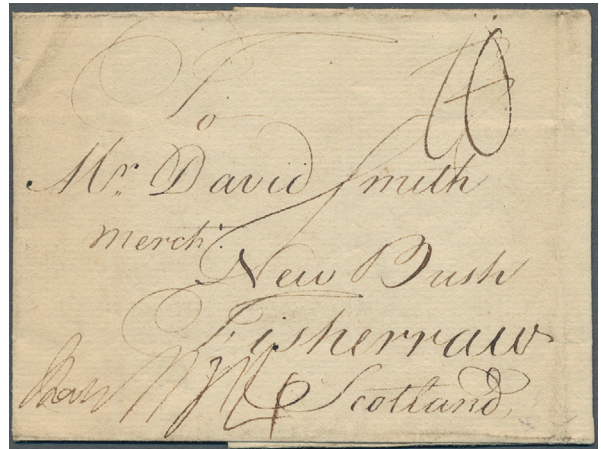 To
Mr. David Smith
Mercht.
New Bush
Fisherraw
Scotland